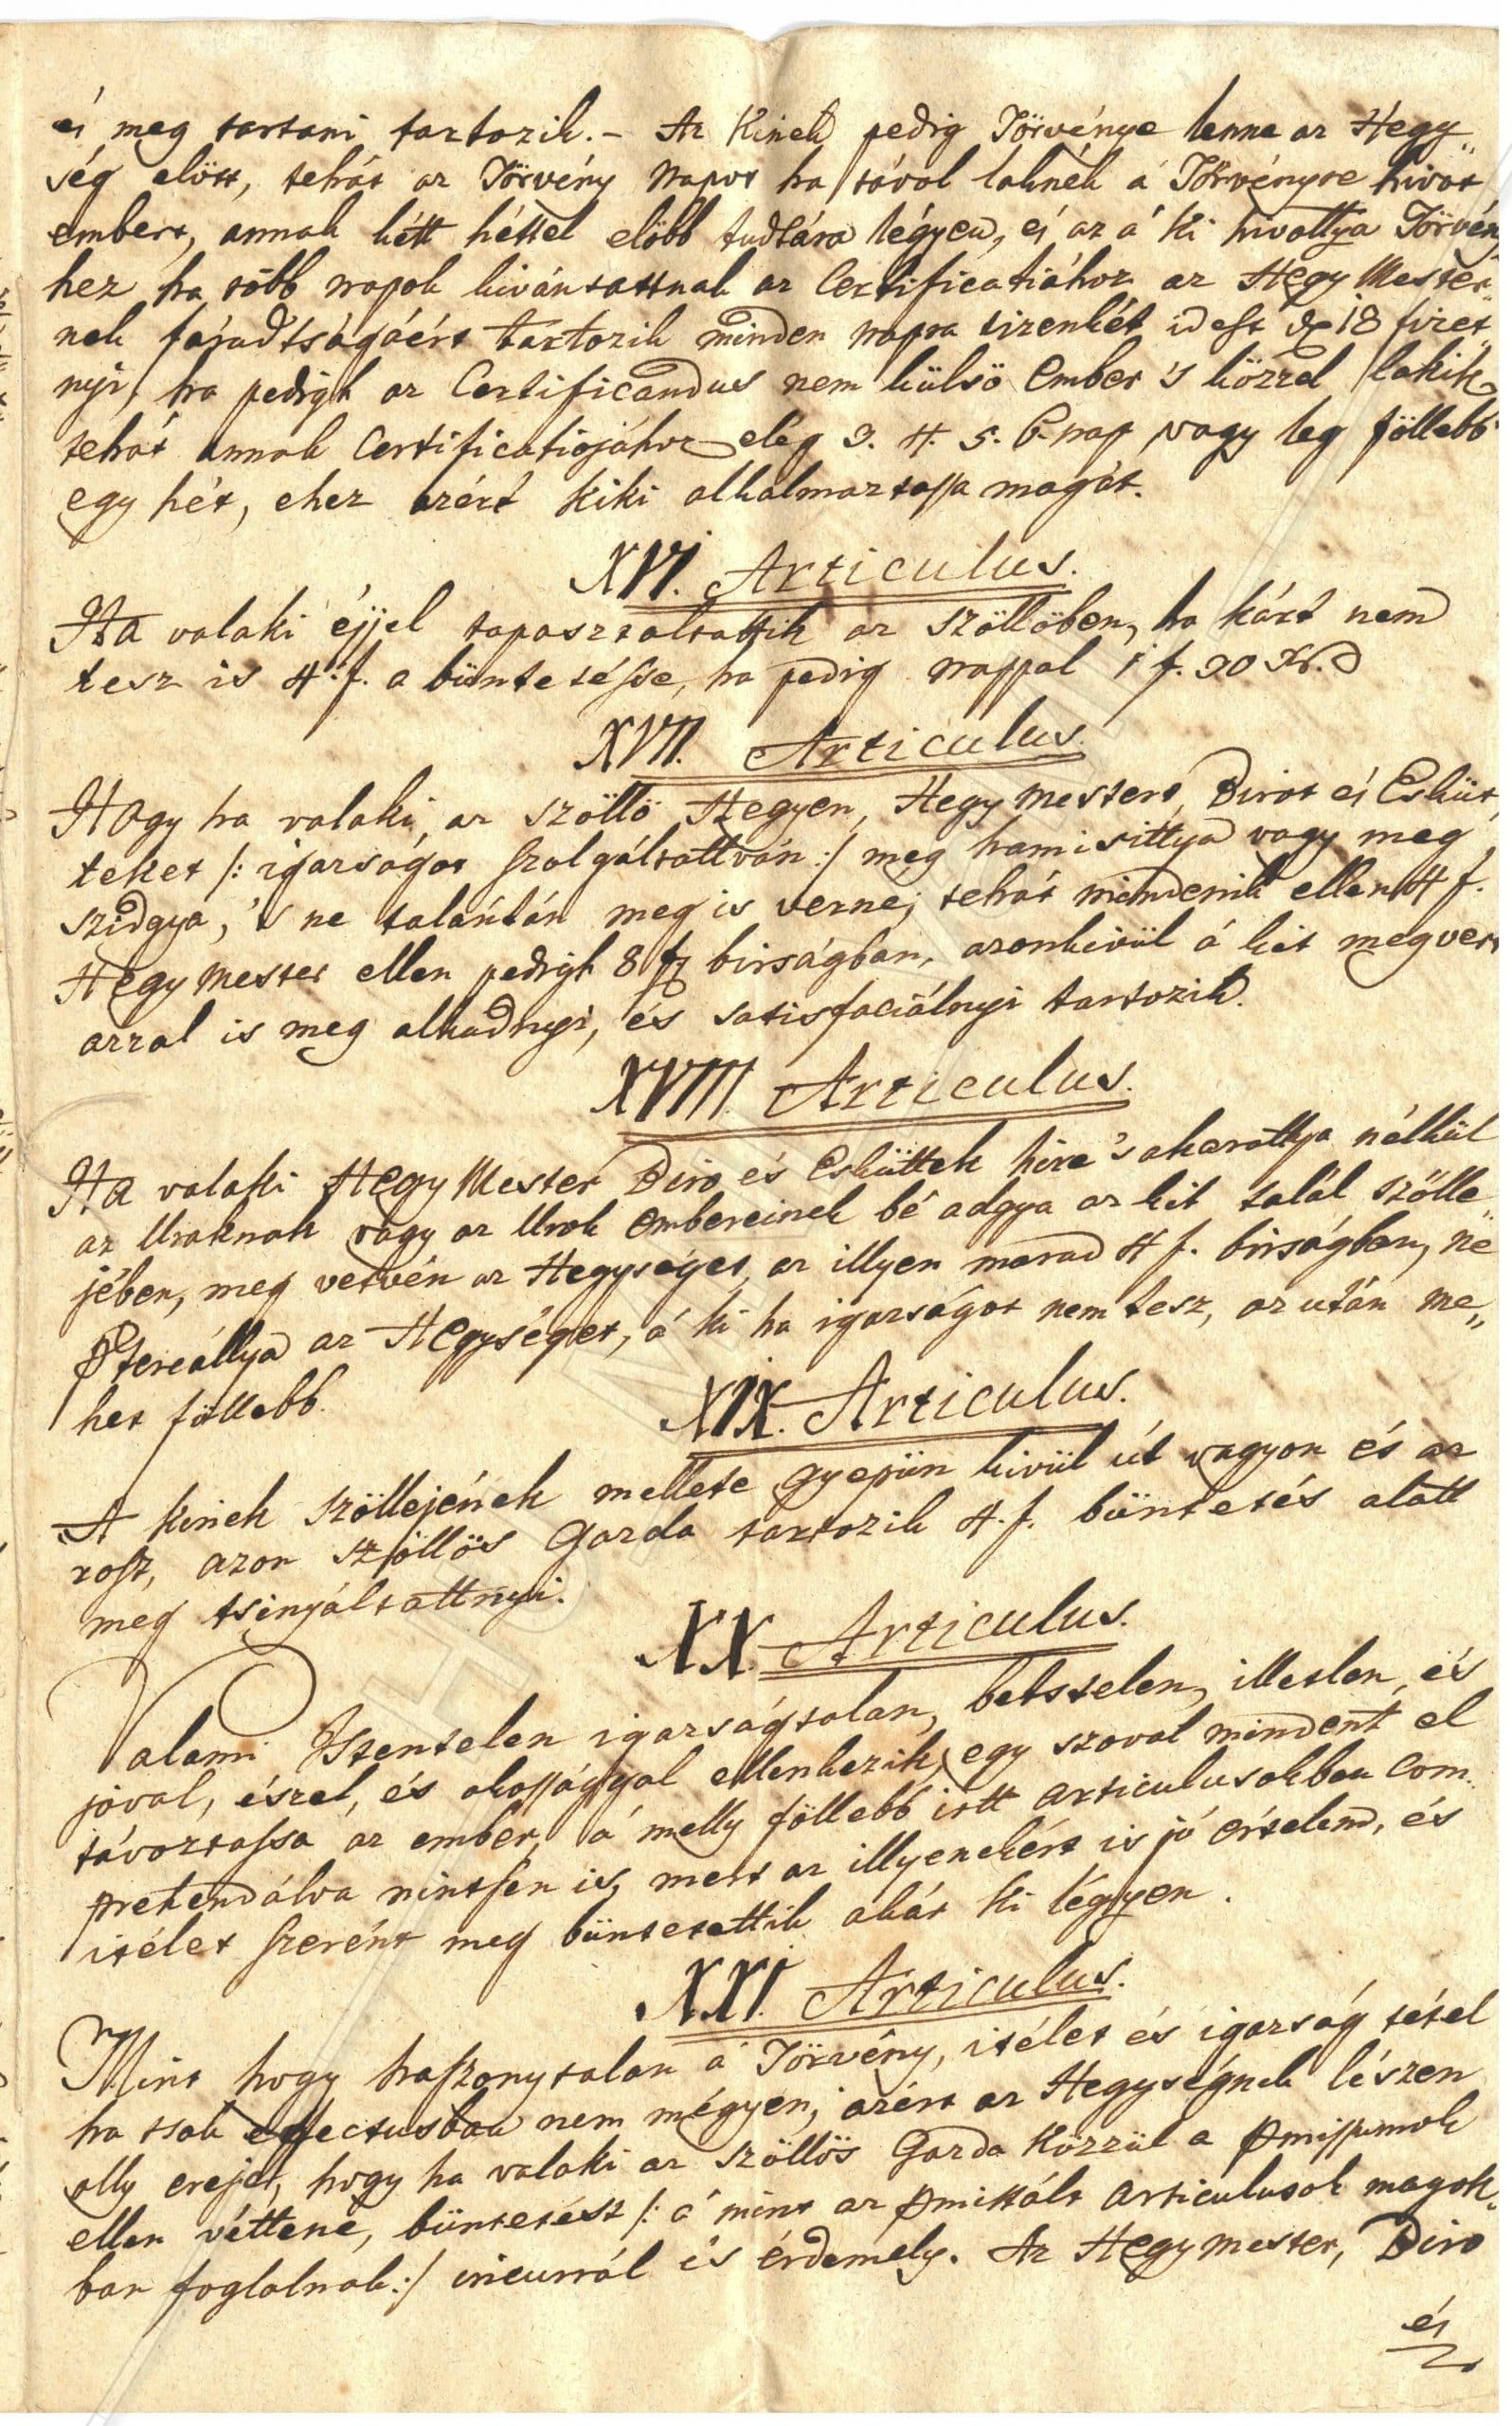 és meg tartani tartozik. – Az Kinek pedig Törvénye lenne az Hegy„
ség elött, tehát az Törvény napot ha távol laknék á Törvényre hivot
embert, annak hétt héttel elöbb tudtára légyen, és az á ki hivattya Törvény
hez ha több napok kivántattnak az Certificatiához az Hegy Mester„
nek fáradtságáért tartozik minden napra tizenkét id est 18 fizet„
nyi, ha pedigh az Certificandus nem külsö Ember 's közzel lakik
tehát annak Certificatiojához elég 3. 4. 5. 6. nap, vagy leg föllebb
egy hét, ehez azért kiki alkalmaztassa magát.
XVI. Articulus.
Ha valaki éjjel tapasztaltattik az szöllöben, ha kárt nem
tesz is 4. f. a büntetésse, ha pedig nappal 1 f. 30 Xr.
XVII. Articulus.
Hogy ha valaki, az szöllö Hegyen, Hegy Mestert, Birot és Esküt„
teket /: igazságot szolgáltattván :/ meg hamisittya vagy meg
szidgya, 's ne talántán meg is verne; tehát mindenik ellen 4 f.
Hegy Mester ellen pedigh 8 f birságban, azonkivül á kit megvert
azzal is meg alkudnyi, és satisfaciálnyi tartozik.
XVIII. Articulus.
Ha valaki Hegy Mester Biro és Esküttek hire 's akarattya nélkül
az Uraknak vagy az Urok embereinek bé adgya az kit talál szölle„
jében, meg vetvén az Hegységet, az illyen marad 4 f. birságban, ne
 az Hegységet, á ki ha igazságot nem tesz, az után me„
het föllebb.
XIX. Articulus.
A kinek szöllejének mellete gyepün kivül út vagyon és az
rosz, azon szöllös Gazda tartozik 4. f. büntetés alatt
meg tsinyáltattnyi.
XX. Articulus.
Valami Istentelen igazságtalan, betstelen, illetlen, és
jóval, észel, és okossággal ellenkezik, egy szoval mindent el
távoztassa az ember, á melly föllebb irtt articulusokban com„
prehendálva nintsen is, mert az illyenekért is jó értelem, és
itélet szerént meg büntetettik akár ki légyen.
XXI. Articulus.
Mint hogy haszonytalan á Törvény, itélet és igazság tétel
ha tsak effectusban nem mégyen; azért az Hegységnek lészen
olly erejet, hogy ha valaki az szöllös Gazda közzül a pmissumok
ellen véttene, büntetést /: á mint az pmittált articulusok magok„
ban foglalnak :/ incurrál és érdemely. Az Hegy Mester, Biro
és